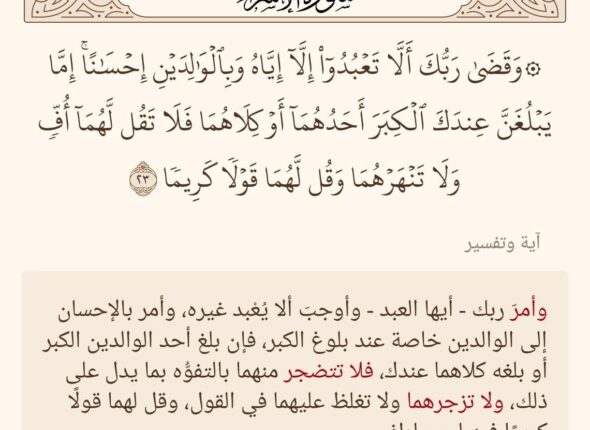 ۞ وَقَضَىٰ رَبُّكَ أَلَّا تَعۡبُدُوٓاْ إِلَّآ إِيَّاهُ وَبِٱلۡوَٰلِدَيۡنِ إِحۡسَٰنًاۚ إِمَّا
يَبۡلُغَنَّ عِندَكَ ٱلۡكِبَرَ أَحَدُهُمَآ أَوۡ كِلَاهُمَا فَلَا تَقُل لَّهُمَآ أُفّٖ
وَلَا تَنۡهَرۡهُمَا وَقُل لَّهُمَا قَوۡلٗا كَرِيمٗا ٢٣
آية وتفسير
وأمرَ ربك - أيها العبد - وأوجبَ ألا يُعْبد غيره، وأمر بالإحسان
إلى الوالدين خاصة عند بلوغ الكبر، فإن بلغ أحد الوالدين الكبر
أو بلغه كلاهما عندك، فلا تتضجر منهما بالتفوُّه بما يدل على
ذلك، ولا تزجرهما ولا تغلظ عليهما في القول، وقل لهما قولًا